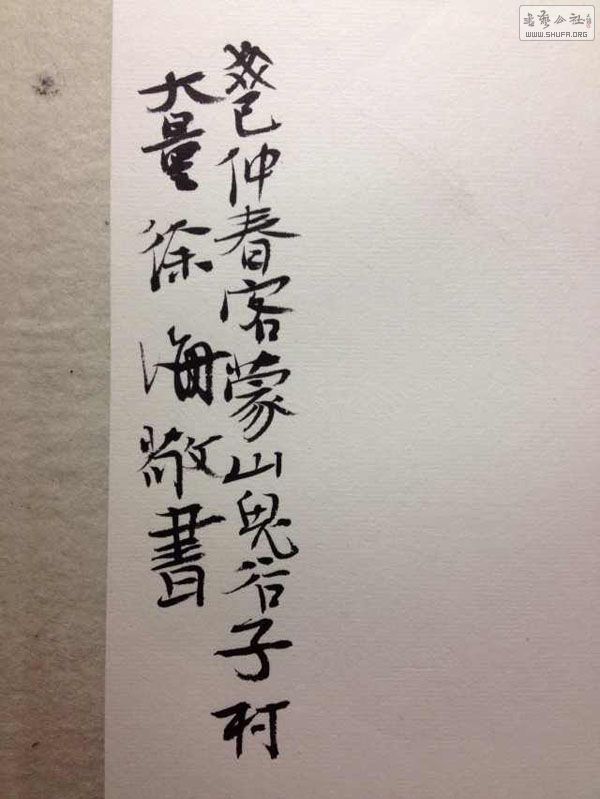 癸巳仲春客蒙山鬼谷子村
大量徐海敬書
書藝公社
WWW.SHUFA.ORG